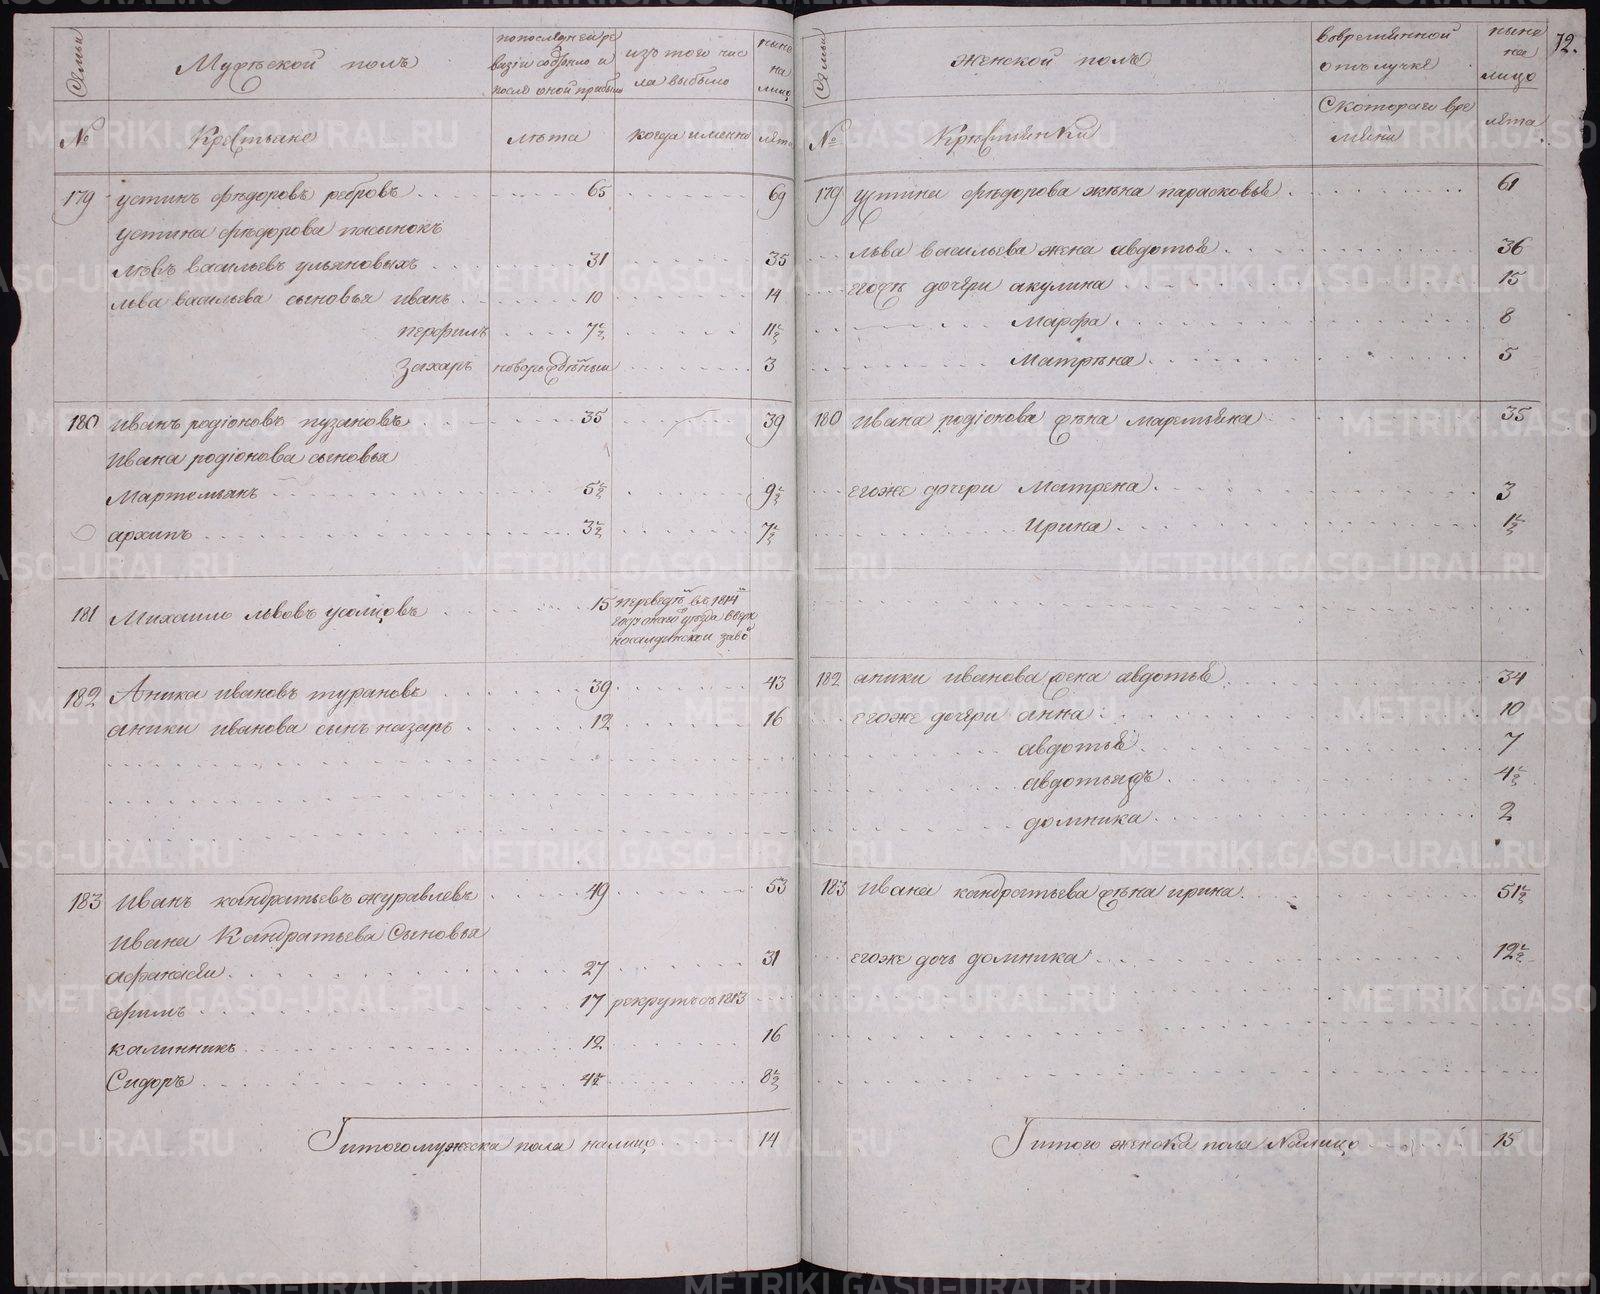 Семьи
Мужеской полъ
по последней ре
визіи состояло и
после оной прибыло
изъ того чис
ла выбыло
ныне
на
лицо
№
Крестьяне
лѣта
когда именно
лѣта
179 устинъ фѣдоровъ ребровъ 65 69
устина фѣдорова пасынокъ
левъ васильевъ ульяновыхъ 31 35
льва васильева сыновья иванъ 10 14
перфилъ 7½ 11½
Захаръ новорожденный 3
180 иванъ родіоновъ пузановъ 35 39
ивана родіонова сыновья
Мартемьянъ 5½ 9½
архипъ 3½ 7½
181 Михаило львовъ усолцовъ 15 переведѣ въ 1814
уезда верх
несалдинской заво
182 Аника ивановъ турановъ 39 43
аники иванова сынъ назаръ 12 16
183 Иванъ кандратьевъ журавлевъ 49 53
Ивана Кандратьева Сыновья
афанасеи 27 31
ефимъ 17 рекрутъ въ 1813
калинникъ 12 16
Сидоръ 4½ 8½
И итого мужеска пола налицо 14
72.
Семьи
женской полъ
во времянной
отълучке
ныне
на
лицо
№
Крестьянки
С котораго вре
мяни
лѣта
179 устина фѣдорова жѣна парасковья 61
льва васильева жена авдотья 36
егожъ дочери акулина 15
Марфа 8
Матрѣна 5
180 ивана родіонова жѣна маремьяна 35
егоже дочери Матрена 3
Ирина 1½
182 аники иванова жена авдотья 34
егоже дочери анна 10
авдотья 7
авдотья жъ 4½
домника 2
183 Ивана кандратьева жѣна ирина 51½
егоже дочь домника 12½
И итого женска пола Налицо 15
METRIKI.GASO-URAL.RU